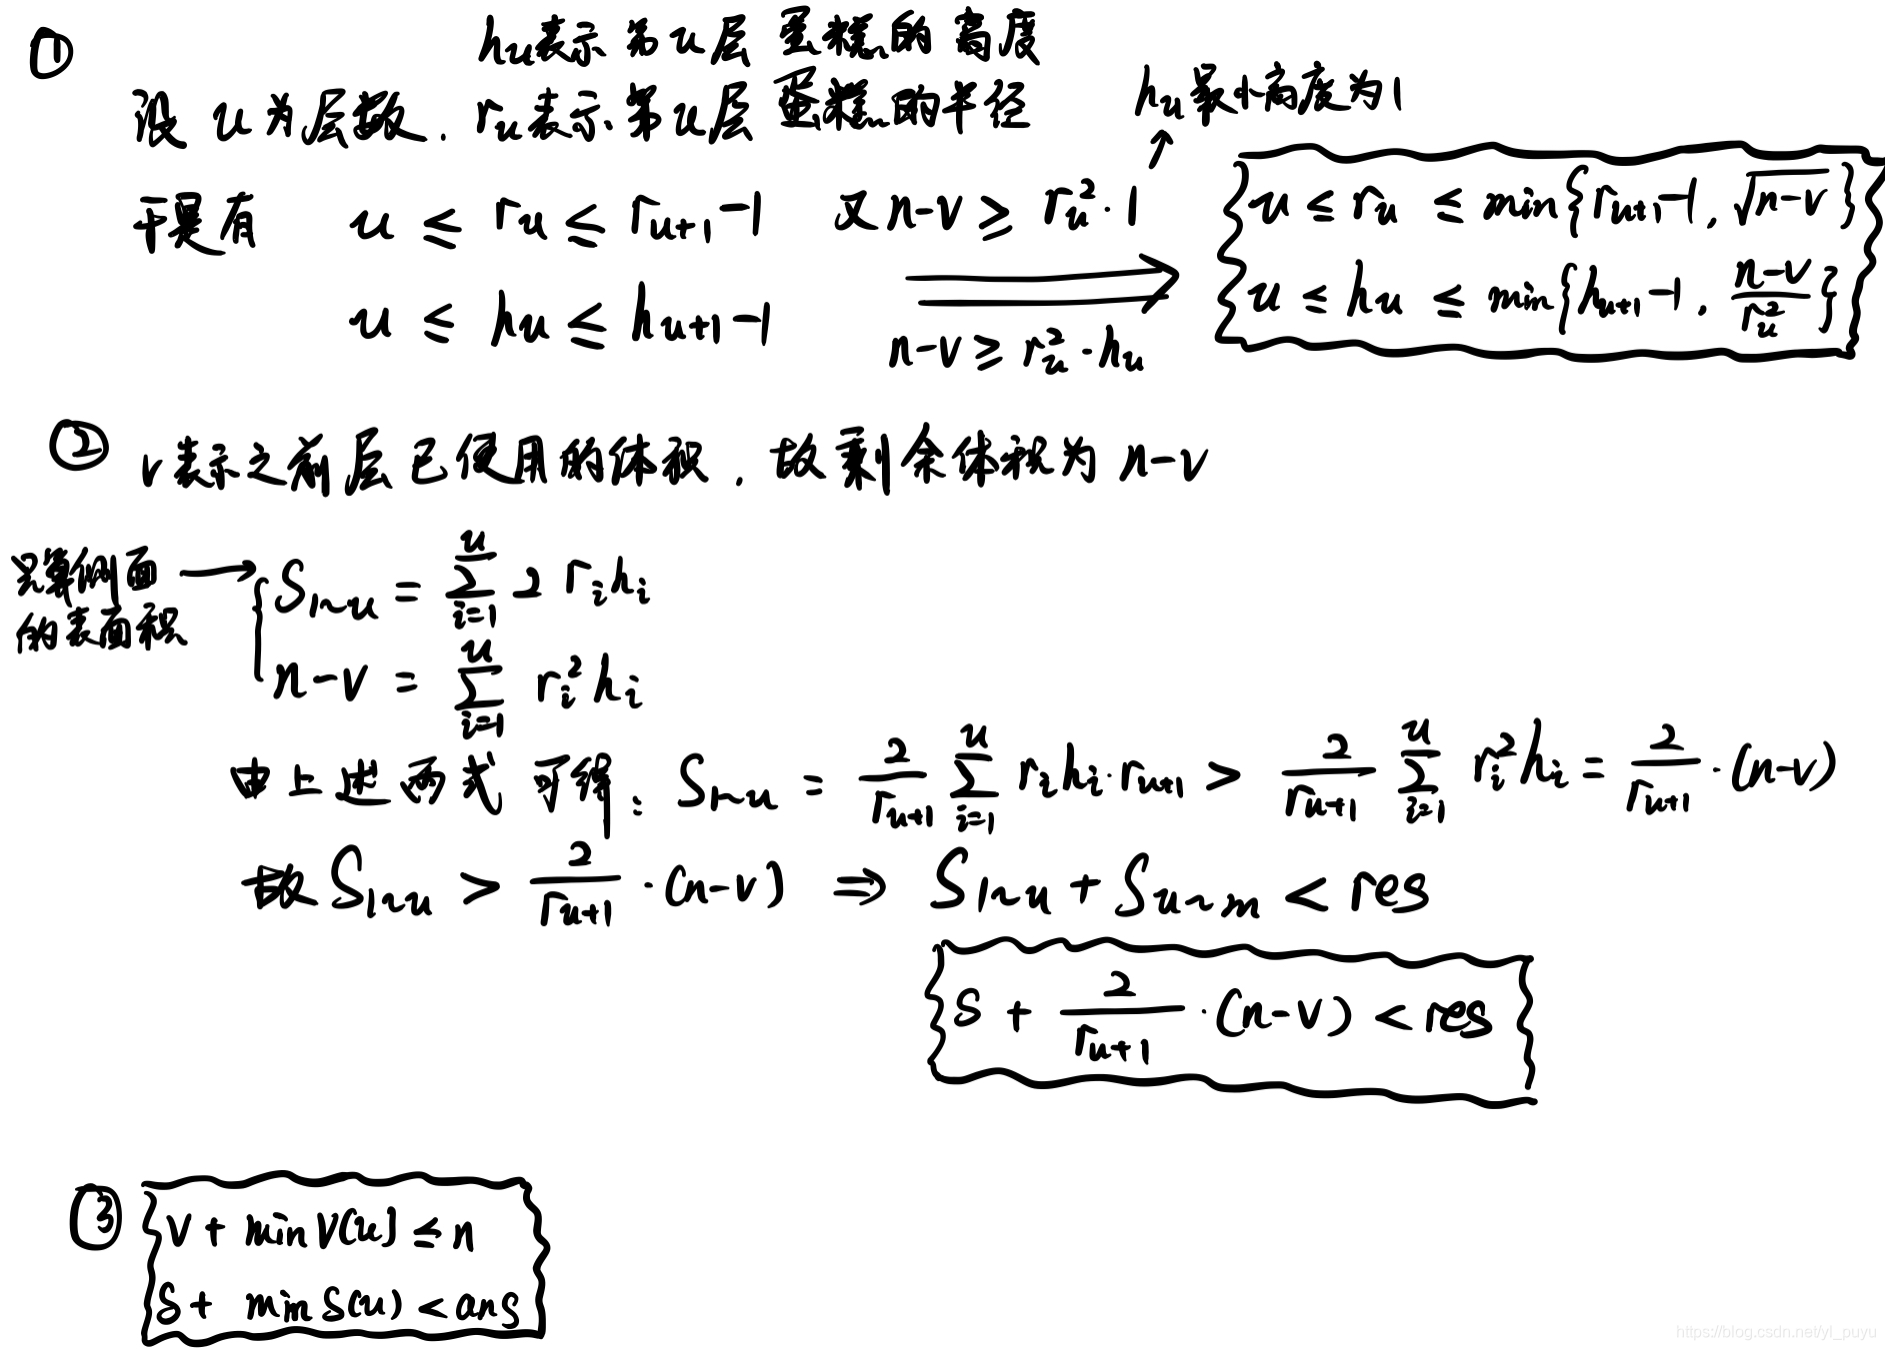 ①
h_u表示第u层蛋糕的高度
设 u为层数. r_u表示第u层蛋糕的半径
h_u最小高度为1
于是有 u ≤ r_u ≤ r_{u+1}-1 又 n-v ≥ r_u^2·1
u ≤ h_u ≤ h_{u+1}-1 n-v ≥ r_u^2·h_u
u ≤ r_u ≤ min{r_{u+1}-1, √(n-v)}
u ≤ h_u ≤ min{h_{u+1}-1, (n-v)/r_u^2}
② v表示之前层已使用的体积, 故剩余体积为 n-v
只算侧面的表面积 → S_{1~u} = ∑_{i=1}^{u} 2 r_i h_i
n-v = ∑_{i=1}^{u} r_i^2 h_i
由上述两式可得: S_{1~u} = 2/r_{u+1} ∑_{i=1}^{u} r_i h_i·r_{u+1} > 2/r_{u+1} ∑_{i=1}^{u} r_i^2 h_i = 2/r_{u+1}·(n-v)
故 S_{1~u} > 2/r_{u+1}·(n-v) ⇒ S_{1~u} + S_{u~m} < res
S + 2/r_{u+1}·(n-v) < res
③ v + minV[u] ≤ n
S + minS(u) < ans
https://blog.csdn.net/yl_puyu